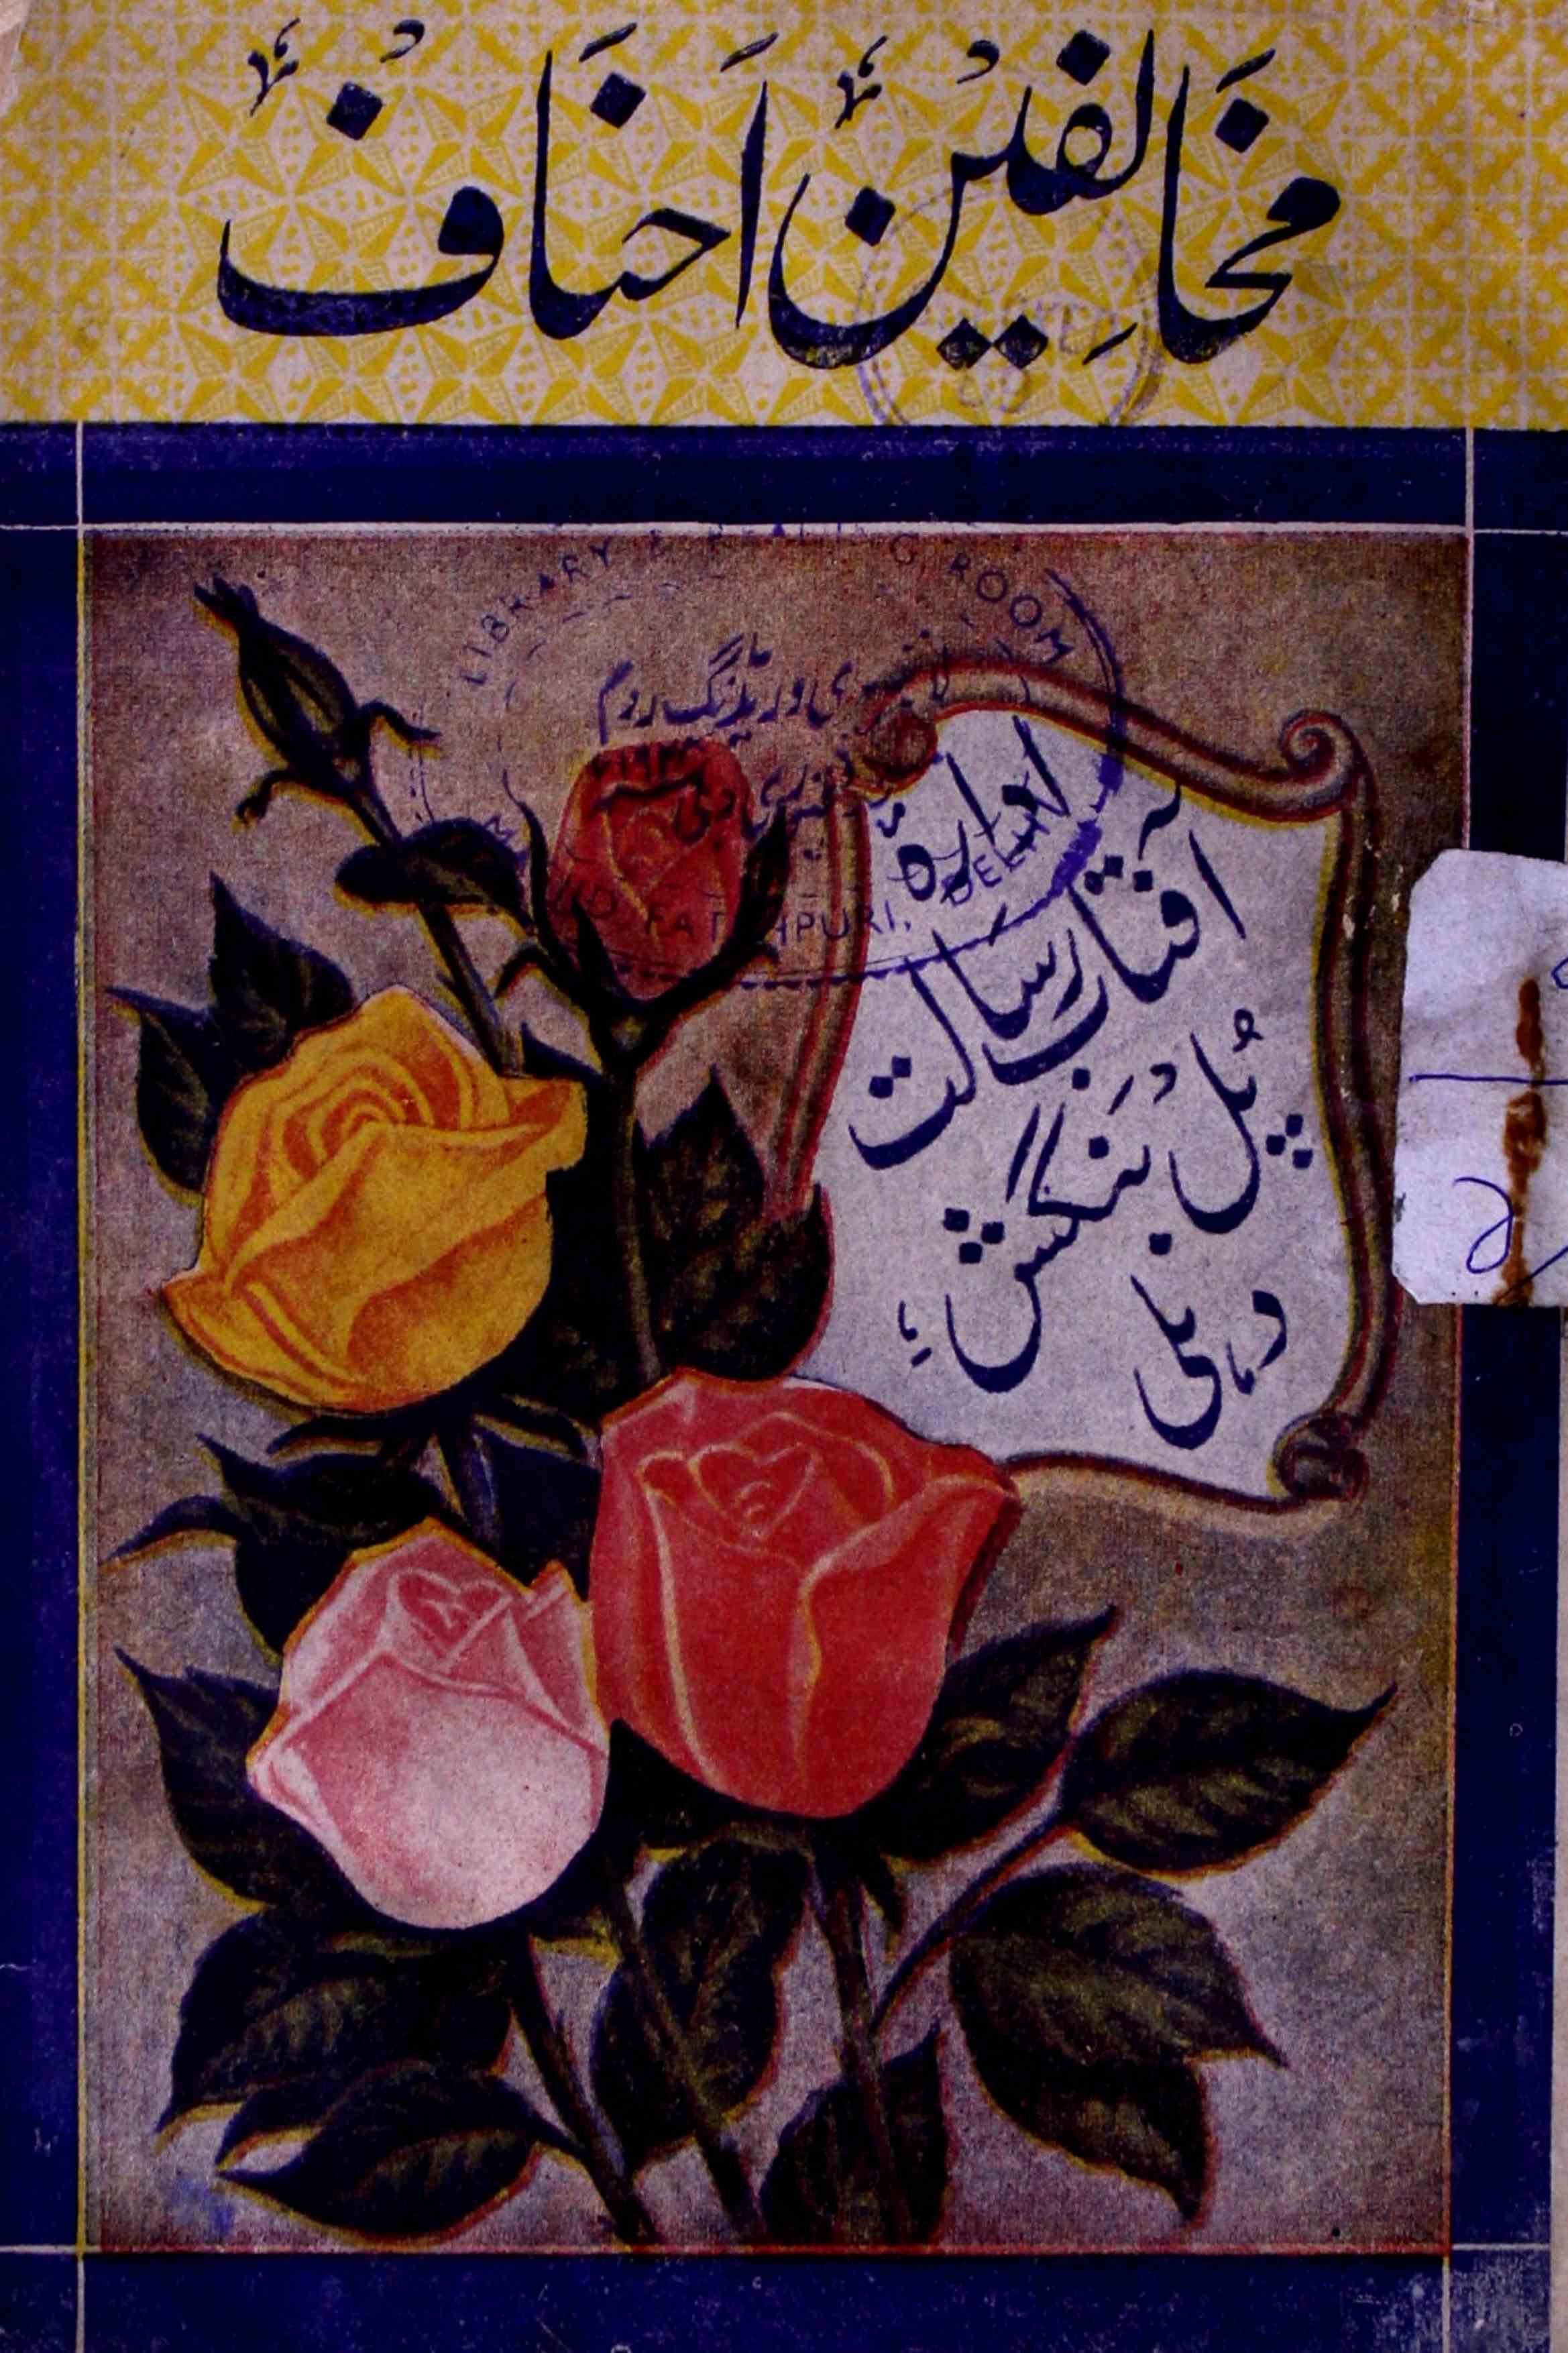 مخالفین احناف
LIBRARY & READING ROOM
لائبریری و ریڈنگ روم
فتحپوری دہلی
MASJID, FATEHPURI, DELHI
ادارۂ
آفتاب رسالت
پُل بنگش
دہلی